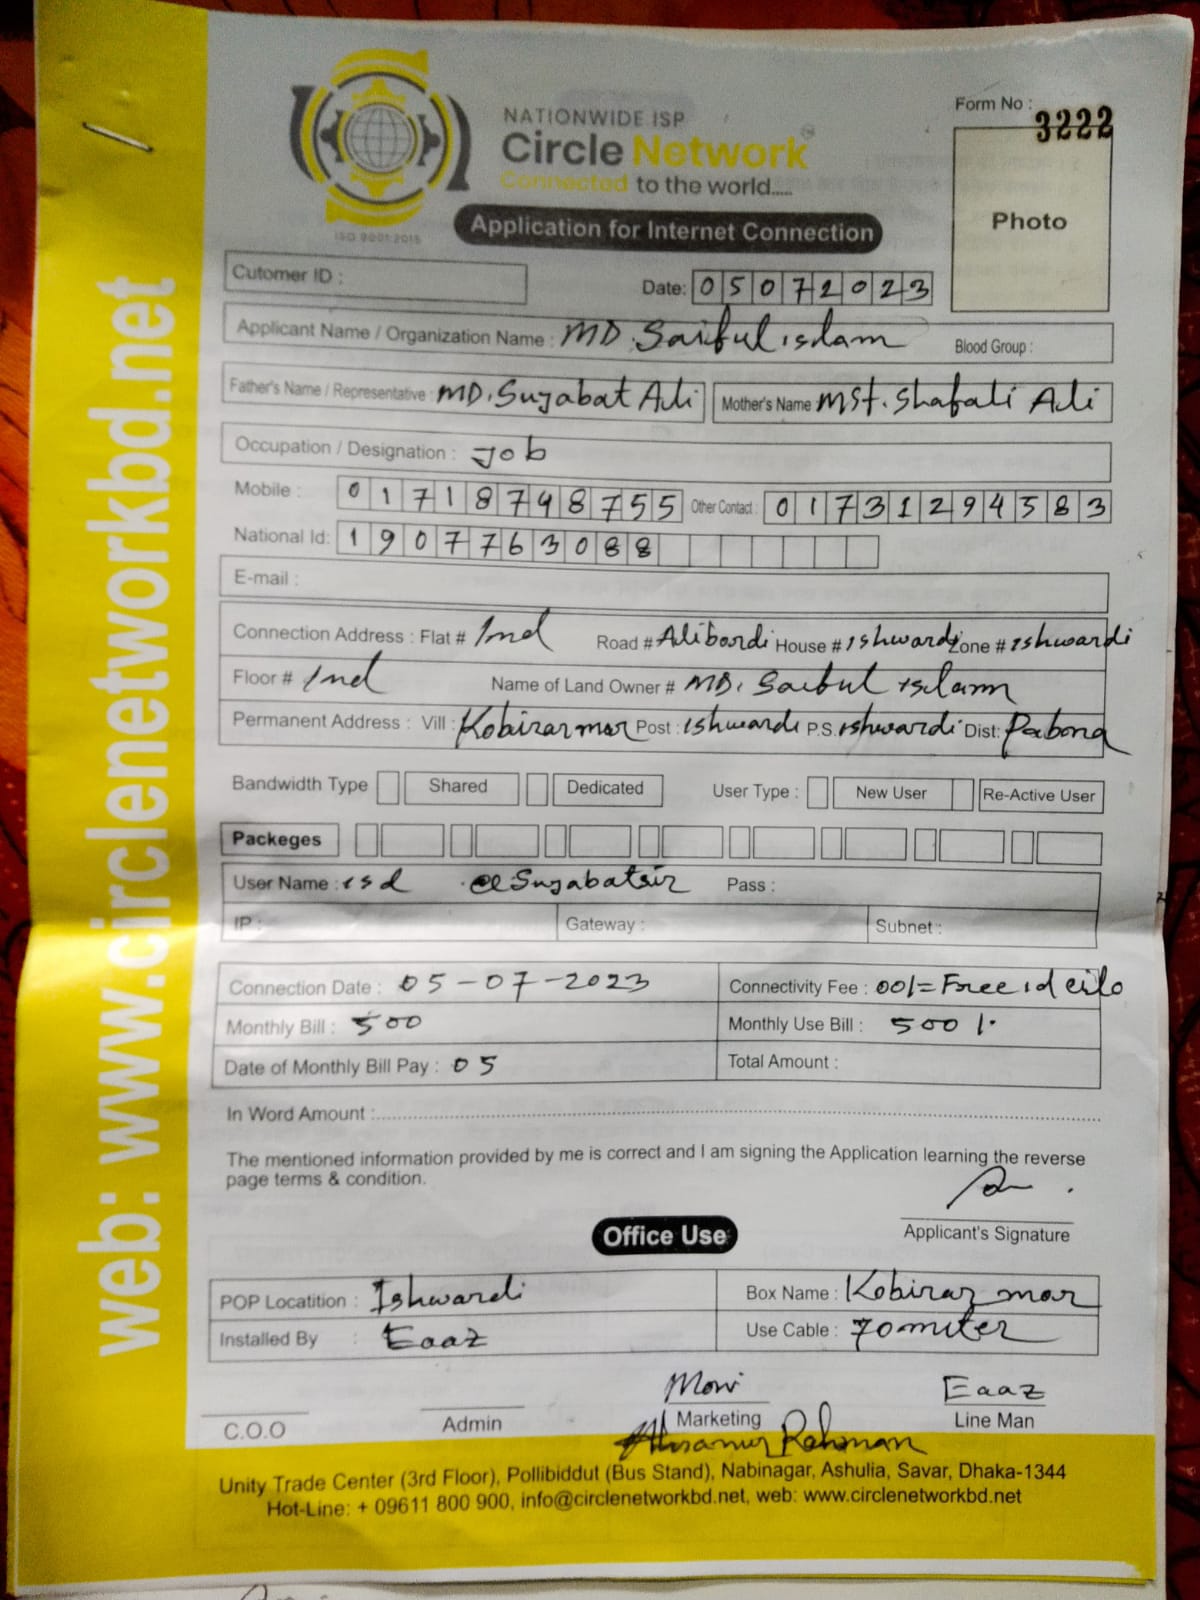 Form No :
3222
NATIONWIDE ISP
Circle Network
Connected to the world.....
ISO 9001:2015
Photo
Application for Internet Connection
Cutomer ID :
Date: 05072023
Applicant Name / Organization Name : MD. Saiful islam
Blood Group :
Father's Name / Representative : MD. Sujabat Ali Mother's Name MSt. Shafali Ali
Occupation / Designation : Job
Mobile : 01718798755 Other Contact : 01731294583
National Id: 1907763088
E-mail :
Connection Address : Flat # Road # Alibordi House # ishwardi Zone # ishwardi
Floor # Name of Land Owner # MD. Saibul islam
Permanent Address : Vill : Kobirazmor Post : ishwardi P.S. ishwardi Dist: Pabona
Bandwidth Type Shared Dedicated User Type : New User Re-Active User
Packeges
User Name : isd Sujabatsir Pass :
IP : Gateway : Subnet :
Connection Date : 05-07-2023 Connectivity Fee : 00/= Free id
Monthly Bill : 500 Monthly Use Bill : 500 /.
Date of Monthly Bill Pay : 05 Total Amount :
In Word Amount :
The mentioned information provided by me is correct and I am signing the Application learning the reverse
page terms & condition.
Applicant's Signature
Office Use
POP Locatition : Ishwardi Box Name : Kobiraz mor
Installed By : Eaaz Use Cable : 70 miter
Moni Eaaz
C.O.O Admin Marketing Line Man
Rahman
Unity Trade Center (3rd Floor), Pollibiddut (Bus Stand), Nabinagar, Ashulia, Savar, Dhaka-1344
Hot-Line: + 09611 800 900, info@circlenetworkbd.net, web: www.circlenetworkbd.net
web: www.circlenetworkbd.net